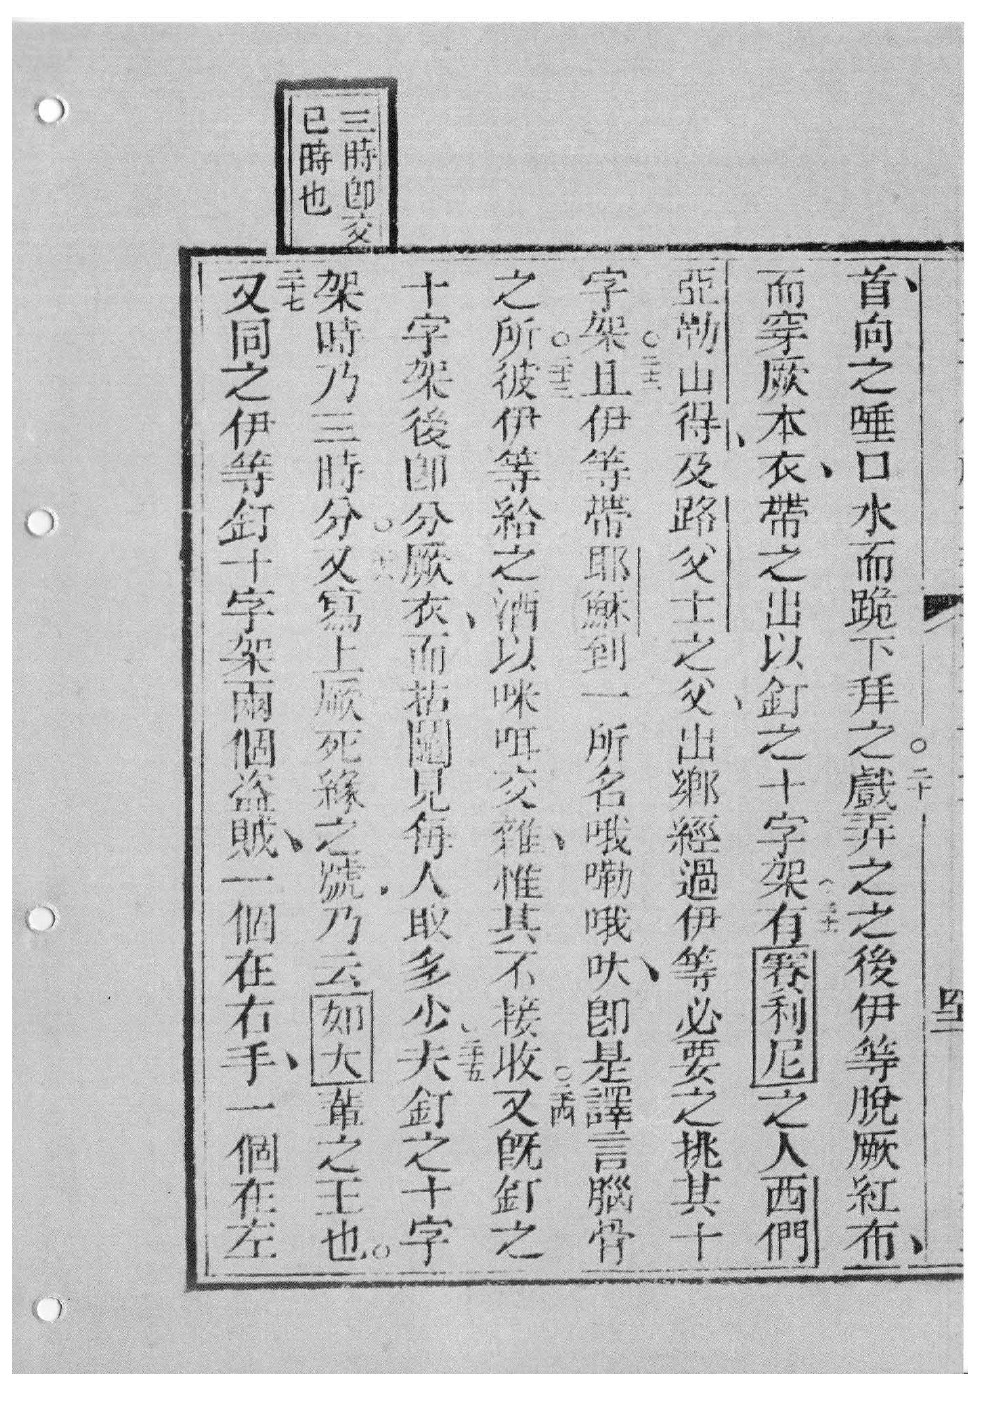 首向之唾口水而跪下拜之戲弄之之後伊等脫厥紅布
二十
而穿厥本衣帶之出以釘之十字架有賽利尼之人西們
二十一
亞勒山得及路父士之父出鄉經過伊等必要之挑其十
字架且伊等帶耶穌到一所名哦嘞哦吠卽是譯言腦骨
二十二
之所彼伊等給之洒以咪咡交雜惟其不接收又旣釘之
二十三
二十四
十字架後卽分厥衣而拈鬮見每人取多少夫釘之十字
二十五
架時乃三時分又寫上厥死緣之號乃云如大輩之王也
二十六
又同之伊等釘十字架兩個盜賊一個在右手一個在左
二十七
三時卽交
巳時也